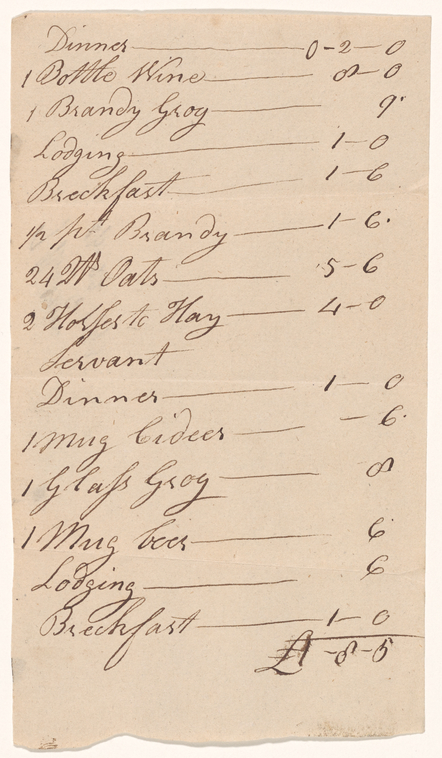 Dinner — 0-2-0
1 Bottle Wine — 8-0
1 Brandy Grog — 9
Lodging — 1-0
Breckfast — 1-6
1/2 pt Brandy — 1-6
24 Qts Oats — 5-6
2 Horsses to Hay — 4-0
Servant
Dinner — 1-0
1 Mug Cideer — -6
1 Glass Grog — 8
1 Mug beer — 6
Lodging — 6
Breckfast — 1-0
£1-8-5